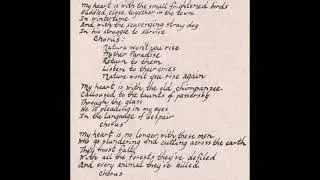 My heart is with the small frightened birds
Huddled close together in the town
In wintertime
And with the scavenging stray dog
In his struggle to survive
Chorus:
Nature won't you rise
Mother Paradise
Return to them
Listen to their cries
Nature won't you rise again
My heart is with the old chimpanzee
Calloused to the taunts of passersby
Through the glass
He is pleading in my eyes
In the language of despair
chorus
My heart is no longer with these men
Who go plundering and cutting across the earth
They must fall
With all the forests they've defiled
And every animal they've killed
chorus